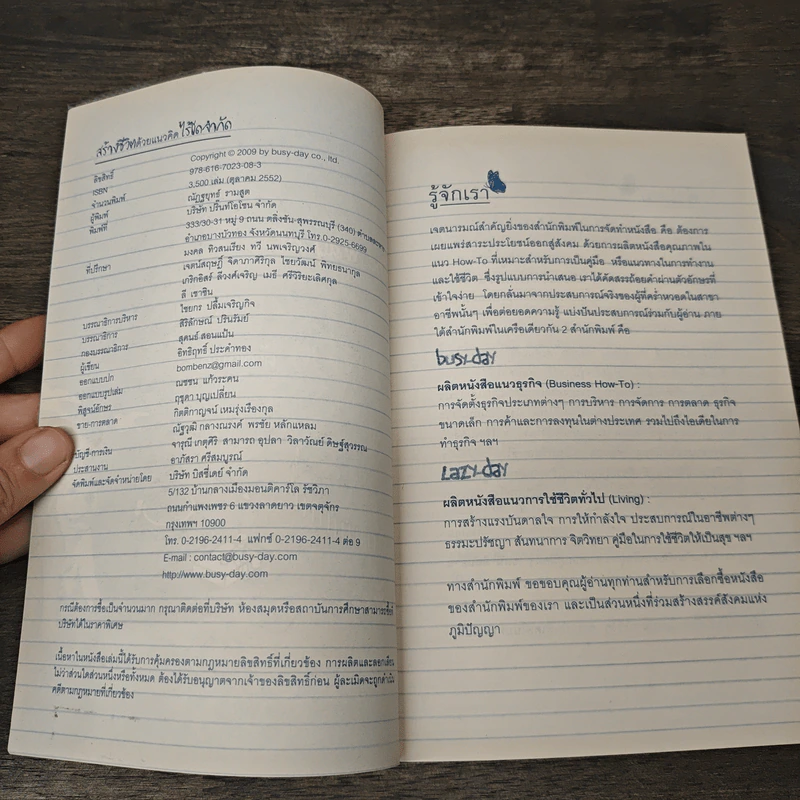 สร้างชีวิตด้วยแนวคิด ไร้ขีดจำกัด
ลิขสิทธิ์ Copyright © 2009 by busy-day co., ltd.
ISBN 978-616-7023-08-3
จำนวนพิมพ์ 3,500 เล่ม (ตุลาคม 2552)
ผู้พิมพ์ ณัฏฐยุทธ์ รามสูต
พิมพ์ที่ บริษัท ปริ๊นท์โอโซน จำกัด
333/30-31 หมู่ 9 ถนน ตลิ่งชัน-สุพรรณบุรี (340)
อำเภอบางบัวทอง จังหวัดนนทบุรี โทร.0-2925-6699
ที่ปรึกษา มงคล ทิวสนเรียง ทวี นพเจริญวงศ์
เจตนัสฤษฎิ์ จิดาภาศิริกุล ไชยวัฒน์ พิทยธนากุล
เกริกอิสร์ ลีวงศ์เจริญ เมธี ศรีวิริยะเลิศกุล
ลี เซาชิน
บรรณาธิการบริหาร ไชยกร ปลื้มเจริญกิจ
บรรณาธิการ สิริลักษณ์ ปรินรัมย์
กองบรรณาธิการ สุคนธ์ สอนแป้น
ผู้เขียน อิทธิฤทธิ์ ประคำทอง
ออกแบบปก bombenz@gmail.com
ออกแบบรูปเล่ม ณชชน แก้วระคน
พิสูจน์อักษร ฤชุดา บุญเปลี่ยน
ขาย-การตลาด กิตติกาญจน์ เหมรุ่งเรืองกุล
ณัฐวุฒิ กลางณรงค์ พรชัย หลักแหลม
บัญชี-การเงิน จารุณี เกตุศิริ สามารถ อุปลา วิลาวัณย์ ดิษฐ์สุวรรณ
ประสานงาน อาภัสรา ศรีสมบูรณ์
จัดพิมพ์และจัดจำหน่ายโดย บริษัท บิสซี่เดย์ จำกัด
5/132 บ้านกลางเมืองมอนติคาร์โล รัชวิภา
ถนนกำแพงเพชร 6 แขวงลาดยาว เขตจตุจักร
กรุงเทพฯ 10900
โทร. 0-2196-2411-4 แฟกซ์ 0-2196-2411-4 ต่อ 9
E-mail : contact@busy-day.com
http://www.busy-day.com
กรณีต้องการซื้อเป็นจำนวนมาก กรุณาติดต่อที่บริษัท ห้องสมุดหรือสถาบันการศึกษาสามารถซื้อที่
บริษัทได้ในราคาพิเศษ
เนื้อหาในหนังสือเล่มนี้ได้รับการคุ้มครองตามกฎหมายลิขสิทธิ์ที่เกี่ยวข้อง การผลิตและลอกเลียน
ไม่ว่าส่วนใดส่วนหนึ่งหรือทั้งหมด ต้องได้รับอนุญาตจากเจ้าของลิขสิทธิ์ก่อน ผู้ละเมิดจะถูกดำเนิน
คดีตามกฎหมายที่เกี่ยวข้อง
รู้จักเรา
เจตนารมณ์สำคัญยิ่งของสำนักพิมพ์ในการจัดทำหนังสือ คือ ต้องการ
เผยแพร่สาระประโยชน์ออกสู่สังคม ด้วยการผลิตหนังสือคุณภาพใน
แนว How-To ที่เหมาะสำหรับการเป็นคู่มือ หรือแนวทางในการทำงาน
และใช้ชีวิต ซึ่งรูปแบบการนำเสนอ เราได้คัดสรรถ้อยคำผ่านตัวอักษรที่
เข้าใจง่าย โดยกลั่นมาจากประสบการณ์จริงของผู้ที่คร่ำหวอดในสาขา
อาชีพนั้นๆ เพื่อต่อยอดความรู้ แบ่งปันประสบการณ์ร่วมกับผู้อ่าน ภาย
ใต้สำนักพิมพ์ในเครือเดียวกัน 2 สำนักพิมพ์ คือ
busy-day
ผลิตหนังสือแนวธุรกิจ (Business How-To) :
การจัดตั้งธุรกิจประเภทต่างๆ การบริหาร การจัดการ การตลาด ธุรกิจ
ขนาดเล็ก การค้าและการลงทุนในต่างประเทศ รวมไปถึงไอเดียในการ
ทำธุรกิจ ฯลฯ
Lazy-day
ผลิตหนังสือแนวการใช้ชีวิตทั่วไป (Living) :
การสร้างแรงบันดาลใจ การให้กำลังใจ ประสบการณ์ในอาชีพต่างๆ
ธรรมะปรัชญา สันทนาการ จิตวิทยา คู่มือในการใช้ชีวิตให้เป็นสุข ฯลฯ
ทางสำนักพิมพ์ ขอขอบคุณผู้อ่านทุกท่านสำหรับการเลือกซื้อหนังสือ
ของสำนักพิมพ์ของเรา และเป็นส่วนหนึ่งที่ร่วมสร้างสรรค์สังคมแห่ง
ภูมิปัญญา